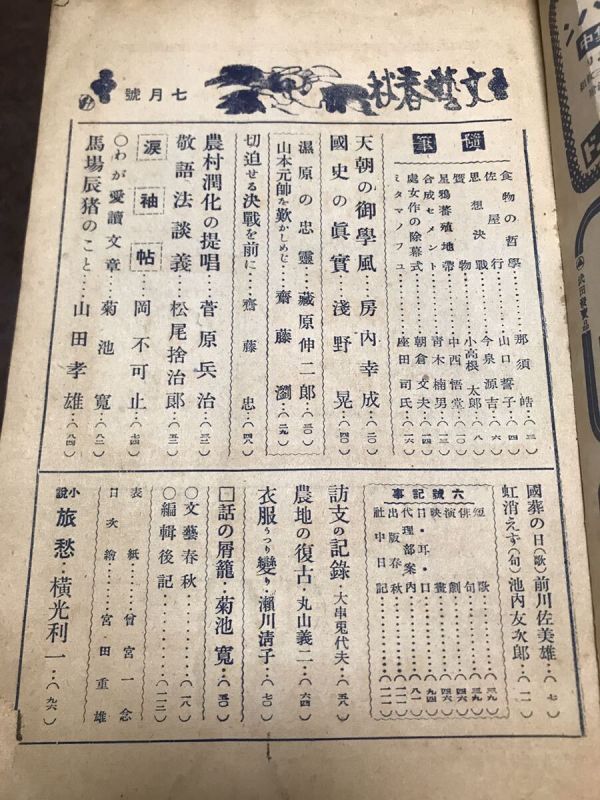 文藝春秋
七月號
隨筆
食物の哲學……那須皓…(三)
佐屋行……山口誓子…(四)
思想決戰……今泉源吉…(六)
贋物……小高根太郎…(八)
星鴉蕃殖地帶……中西悟堂…(一〇)
合成セメント……青木楠男…(一三)
處女作の除幕式……朝倉文夫…(一四)
ミタマノフユ……座田司氏…(一六)
天朝の御學風…房内幸成…(二〇)
國史の眞實…淺野晃…(四〇)
濕原の忠靈…藏原伸二郎…(三〇)
山本元帥を歎かしめじ…齋藤瀏…(二九)
切迫せる決戰を前に…齋藤忠…(四八)
農村潤化の提唱…菅原兵治…(三二)
敬語法談義…松尾捨治郎…(五二)
淚袖帖…岡不可止…(七四)
〇わが愛讀文章…菊池寬…(八二)
馬場辰猪のこと…山田孝雄…(八四)
國葬の日(歌)前川佐美雄…(七)
虹消えず(句)池内友次郎…(一一)
六號記事
短歌……(三九)
俳句……(三九)
演劇……(四六)
映畫……(四六)
目・耳・口……(九四)
代理部案内……(八一)
出版春秋……(一一一)
社中日記……(一一一)
訪支の記錄・大串兎代夫…(五八)
農地の復古・丸山義二…(六四)
衣服うつり變り・瀨川淸子…(七〇)
話の屑籠・菊池寬…(五〇)
〇文藝春秋……(一八)
〇編輯後記……(一一二)
表紙……曾宮一念
目次繪……宮田重雄
小說 旅愁・橫光利一…(九六)